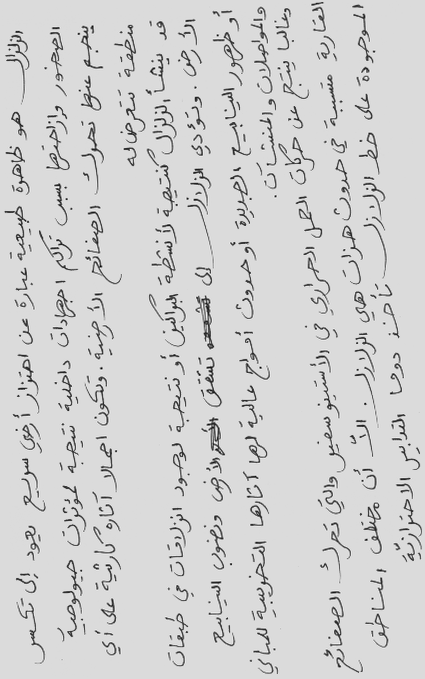 الزلزال هو ظاهرة طبيعية عبارة عن اهتزاز أرضي سريع يعود إلى تكسر
الصخور وإزاحتها بسبب تراكم اجهادات داخلية نتيجة لمؤثرات جيولوجية
ينجم عنها تحرك الصفائح الأرضية. وتكون اجمالا آثاره كارثية على أي
منطقة تتعرض له
قد ينشأ الزلزال كنتيجة لأنشطة البراكين أو نتيجة لوجود انزلاقات في طبقات
الأرض. وتؤدي الزلازل إلى تشقق الأرض ونضوب الينابيع
أو ظهور الينابيع الجديدة أو حدوث أمواج عالية لها آثارها التخريبية للمباني
والمواصلات والمنشآت.
وغالبا ينتج عن حركات الحمل الحراري في الأستينوسفير والتي تحرك الصفائح
القارية متسببة في حدوث هزات هي الزلازل. الا أن مختلف المناطق
الموجودة على خط الزلازل تأخذ دوما التدابير الاحترازية